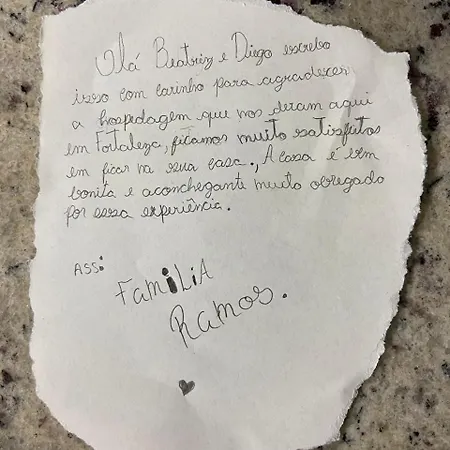 Olá Beatriz e Diego escrebo
isso com carinho para agradecer
a hospedagem que nos deram aqui
em Fortaleza, ficamos muito satisfutos
em ficar na sua casa., A casa é bem
bonita e aconchegante muito obrigado
por essa experiência.
ASS:
FAMILIA
RAMOS.